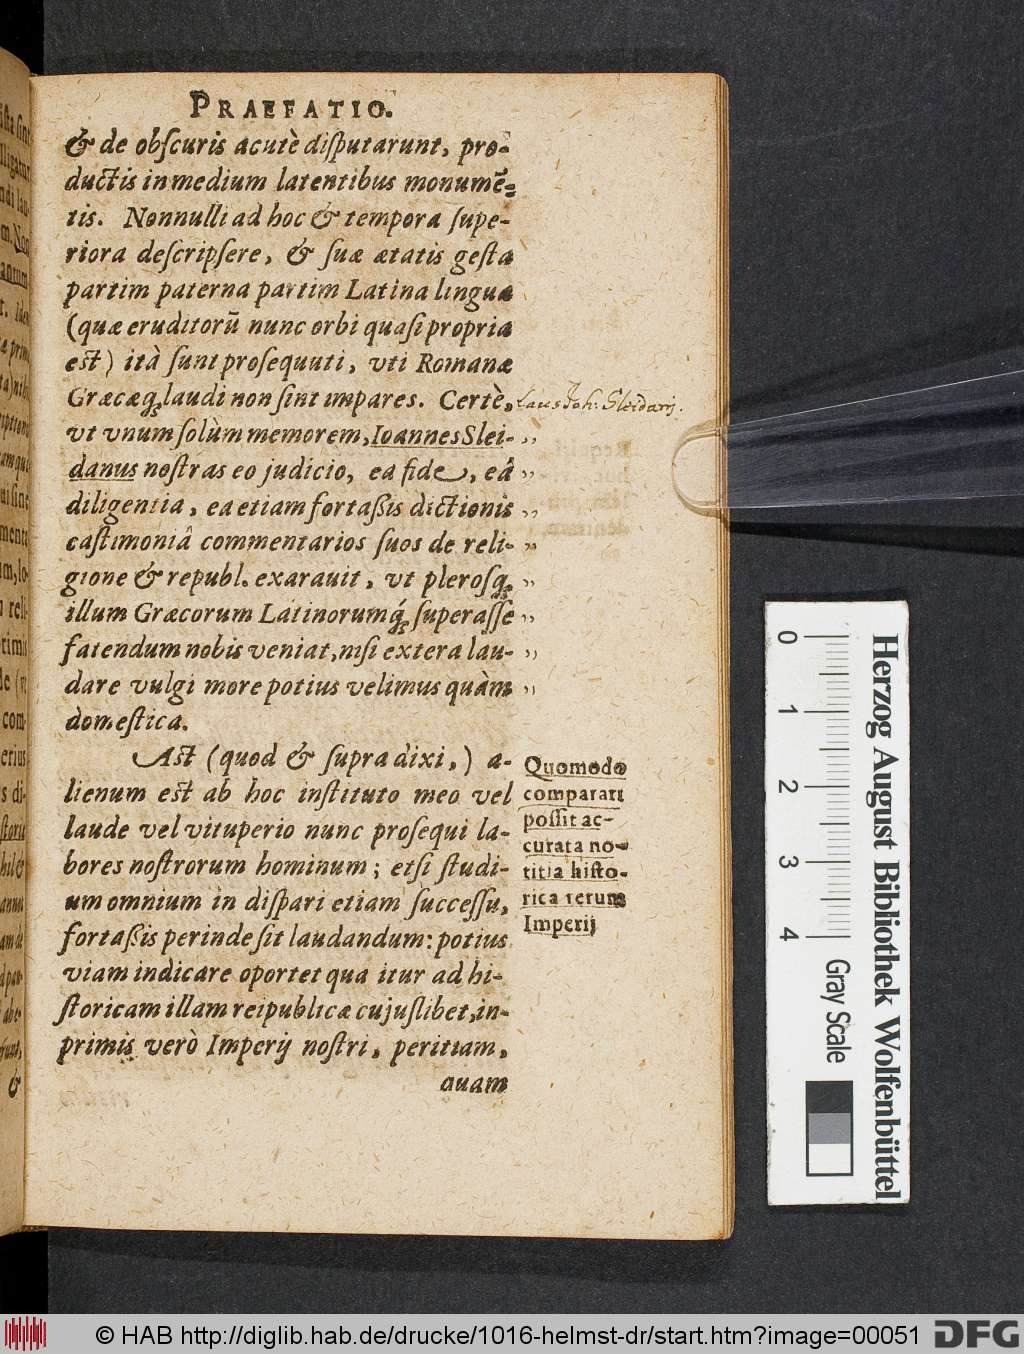 PRAEFATIO.
& de obſcuris acutè diſputarunt, pro-
ductis in medium latentibus monumẽ-
tis. Nonnulli ad hoc & tempora ſupe-
riora deſcripſere, & ſuæ ætatis geſta
partim paterna partim Latina lingua
(quæ eruditorū nunc orbi quaſi propria
eſt) ità ſunt proſequuti, vti Romanæ
Græcæq́; laudi non ſint impares. Certè,
Laus Joh. Sleidani.
vt vnum ſolùm memorem, Ioannes Slei- ,,
danus noſtras eo judicio, ea fide, eâ ,,
diligentia, ea etiam fortaßis dictionis ,,
caſtimoniâ commentarios ſuos de reli- ,,
gione & republ. exarauit, vt plerosq́; ,,
illum Græcorum Latinorumq́; ſuperaſſe ,,
fatendum nobis veniat, niſi extera lau- ,,
dare vulgi more potius velimus quàm ,,
domeſtica.
Aſt (quod & ſupra dixi,) a-
lienum eſt ab hoc inſtituto meo vel
laude vel vituperio nunc proſequi la-
bores noſtrorum hominum; etſi ſtudi-
um omnium in diſpari etiam ſucceſſu,
fortaßis perinde ſit laudandum: potius
viam indicare oportet qua itur ad hi-
ſtoricam illam reipublicæ cujuſlibet, in-
primis verò Imperij noſtri, peritiam,
quam
Quomodo
comparari
poſſit ac-
curata no-
titia hiſto-
rica rerum
Imperij
0 1 2 3 4
Herzog August Bibliothek Wolfenbüttel
Gray Scale
© HAB http://diglib.hab.de/drucke/1016-helmst-dr/start.htm?image=00051
DFG